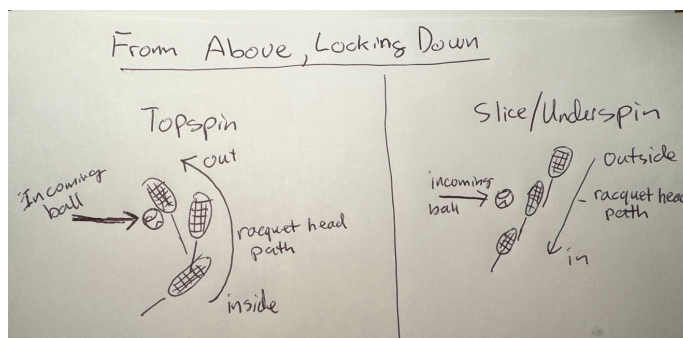 From Above, Looking Down
Topspin
out
Incoming
ball
racquet head
path
inside
Slice/Underspin
outside
incoming
ball
racquet head
path
in